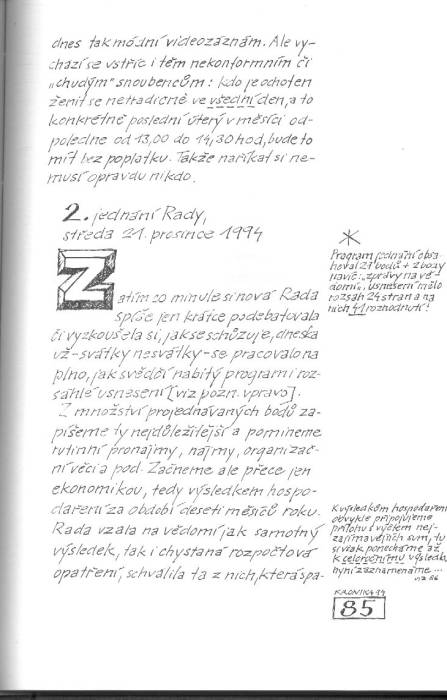 dnes tak módní videozáznam. Ale vy-
chází se vstříc i těm nekonformním či
„chudým" snoubencům: kdo je ochoten
ženit se netradičně ve všední den, a to
konkrétně poslední úterý v měsíci od-
poledne od 13,00 do 14,30 hod, bude to
mít bez poplatku. Takže naříkat si ne-
musí opravdu nikdo.
2. jednání Rady,
středa 21. prosince 1994
Zatím co minule si nová Rada
spíše jen krátce podebatovala
či vyzkoušela si, jak se schůzuje, dneska
už - svátky nesvátky - se pracovalo na
plno, jak svědčí nabitý program i roz-
sáhlé usnesení [viz pozn. vpravo].
Z množství projednávaných bodů za-
píšeme ty nejdůležitější a pomineme
rutinní pronájmy, nájmy, organizač-
ní věci a pod. Začneme ale přece jen
ekonomikou, tedy výsledkem hospo-
daření za období deseti měsíců roku.
Rada vzala na vědomí jak samotný
výsledek, tak i chystaná rozpočtová
opatření, schválila ta z nich, která spa-
*
Program jednání obsa-
hoval 27 bodů + 2 body
navíc: „zprávy na vě-
domí". Usnesení mělo
rozsah 24 stran a na
nich 41 rozhodnutí!
K výsledkům hospodaření
obvykle připojujeme
přílohu s výčtem nej-
zajímavějších sum, tu
si však ponecháme až
k celoročnímu výsledku
nyní zaznamenáme...
KRONIKA 94
85